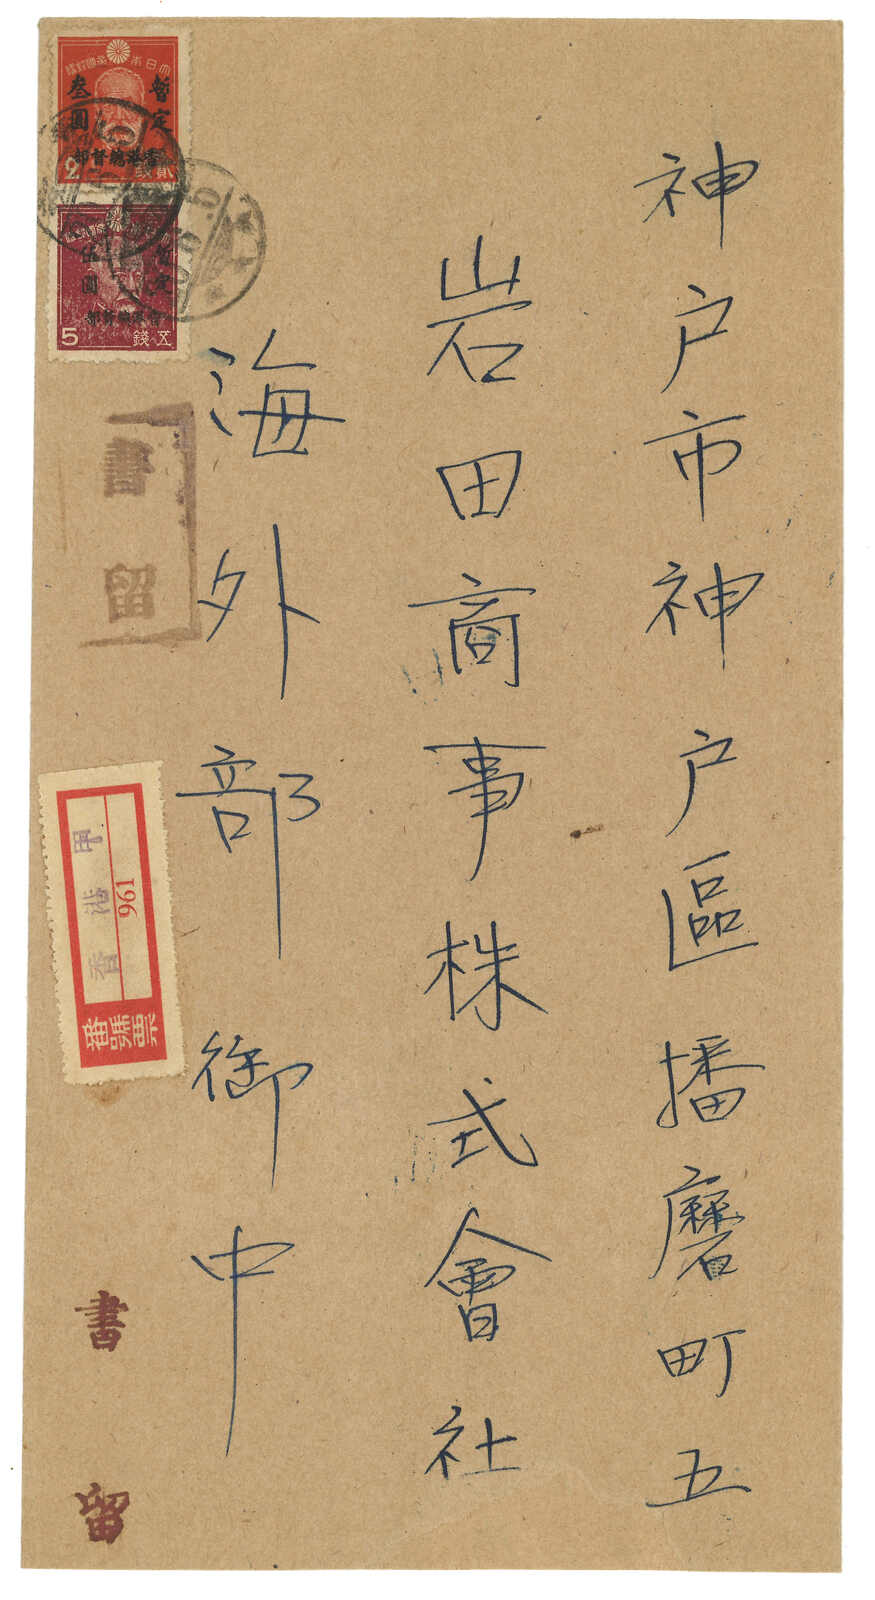 神戸市神戸區播磨町五
岩田商事株式會社
海外部御中
大日本帝國郵便
暫定
叁圓
部督總港香
2
貳錢
暫定
伍圓
部督總港香
5
錢五
書留
香港甲
961
番號票
書留